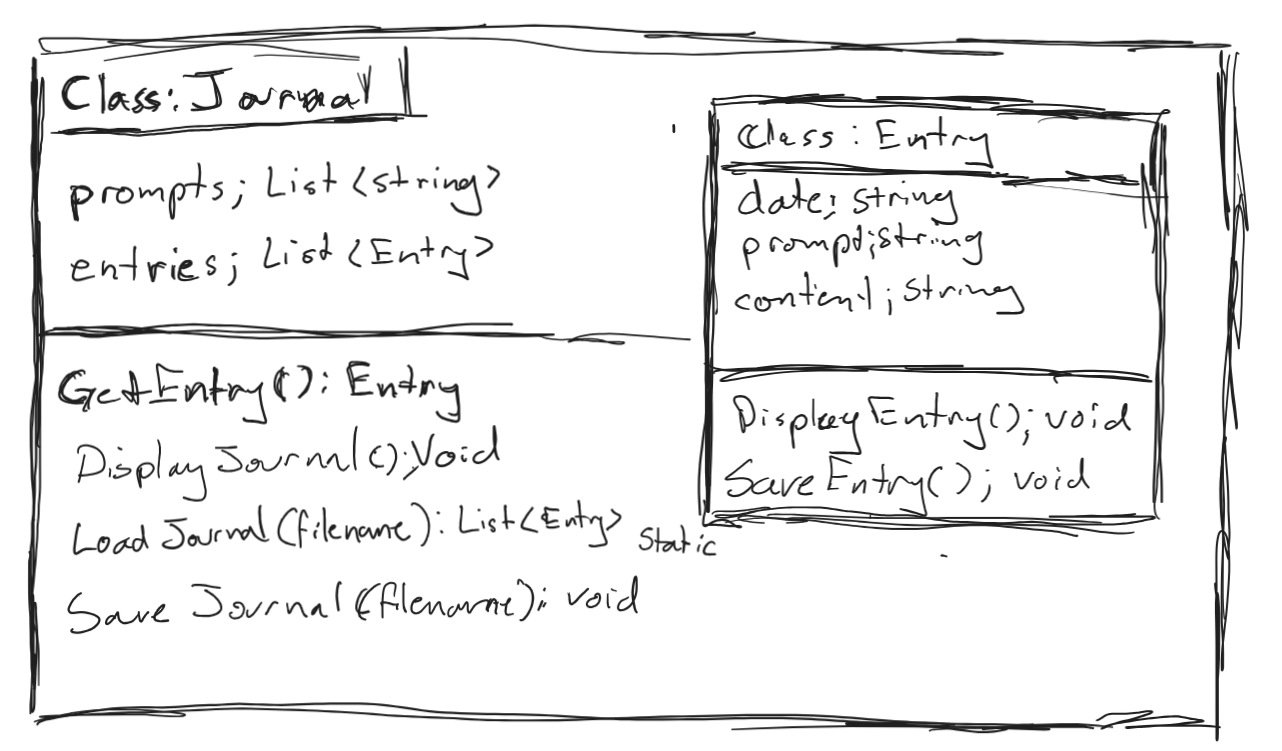 Class: Journal
prompts; List <string>
entries; List <Entry>
GetEntry(): Entry
DisplayJournal();Void
Load Journal(filename): List<Entry> Static
Save Journal(filename); void
Class: Entry
date; string
prompt;string
content; string
DisplayEntry(); void
SaveEntry(); void